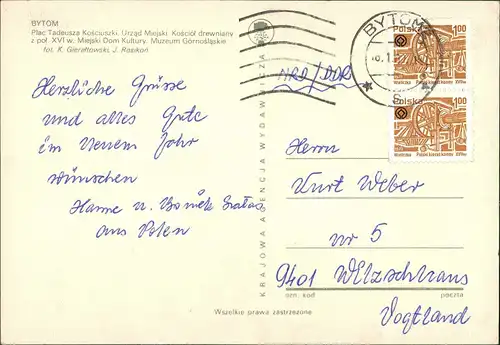 BYTOM
Plac Tadeusza Kościuszki. Urząd Miejski. Kościół drewniany
z poł. XVI w. Miejski Dom Kultury. Muzeum Górnośląskie
fot. K. Gierałtowski, J.
Herzliche Grüsse
und alles Gute
im Neuem Jahr
wünschen
Hanne u.
aus Polen
KRAJOWA AGENCJA WYDAWNICZA
NRD/DDR
BYTOM
Polska 1.00
Wieliczka Polski kierat konny XVIIw.
Polska 1.00
Wieliczka Polski kierat konny XVIIw.
Herrn
Kurt Weber
nr 5
9401
ozn. kod poczta
Vogtland
Wszelkie prawa zastrzeżone